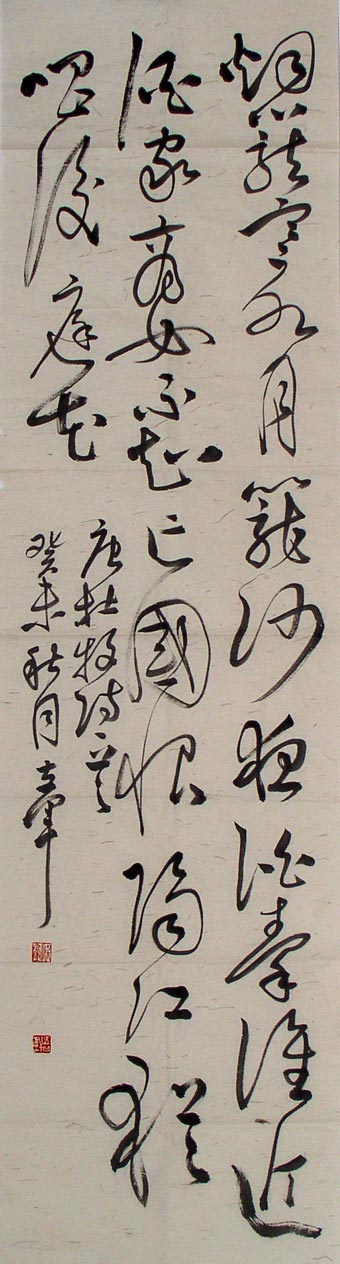 烟籠寒水月籠沙夜泊秦淮近
酒家商女不知亡國恨隔江猶
唱後庭花
唐杜牧詩一首
癸未秋月